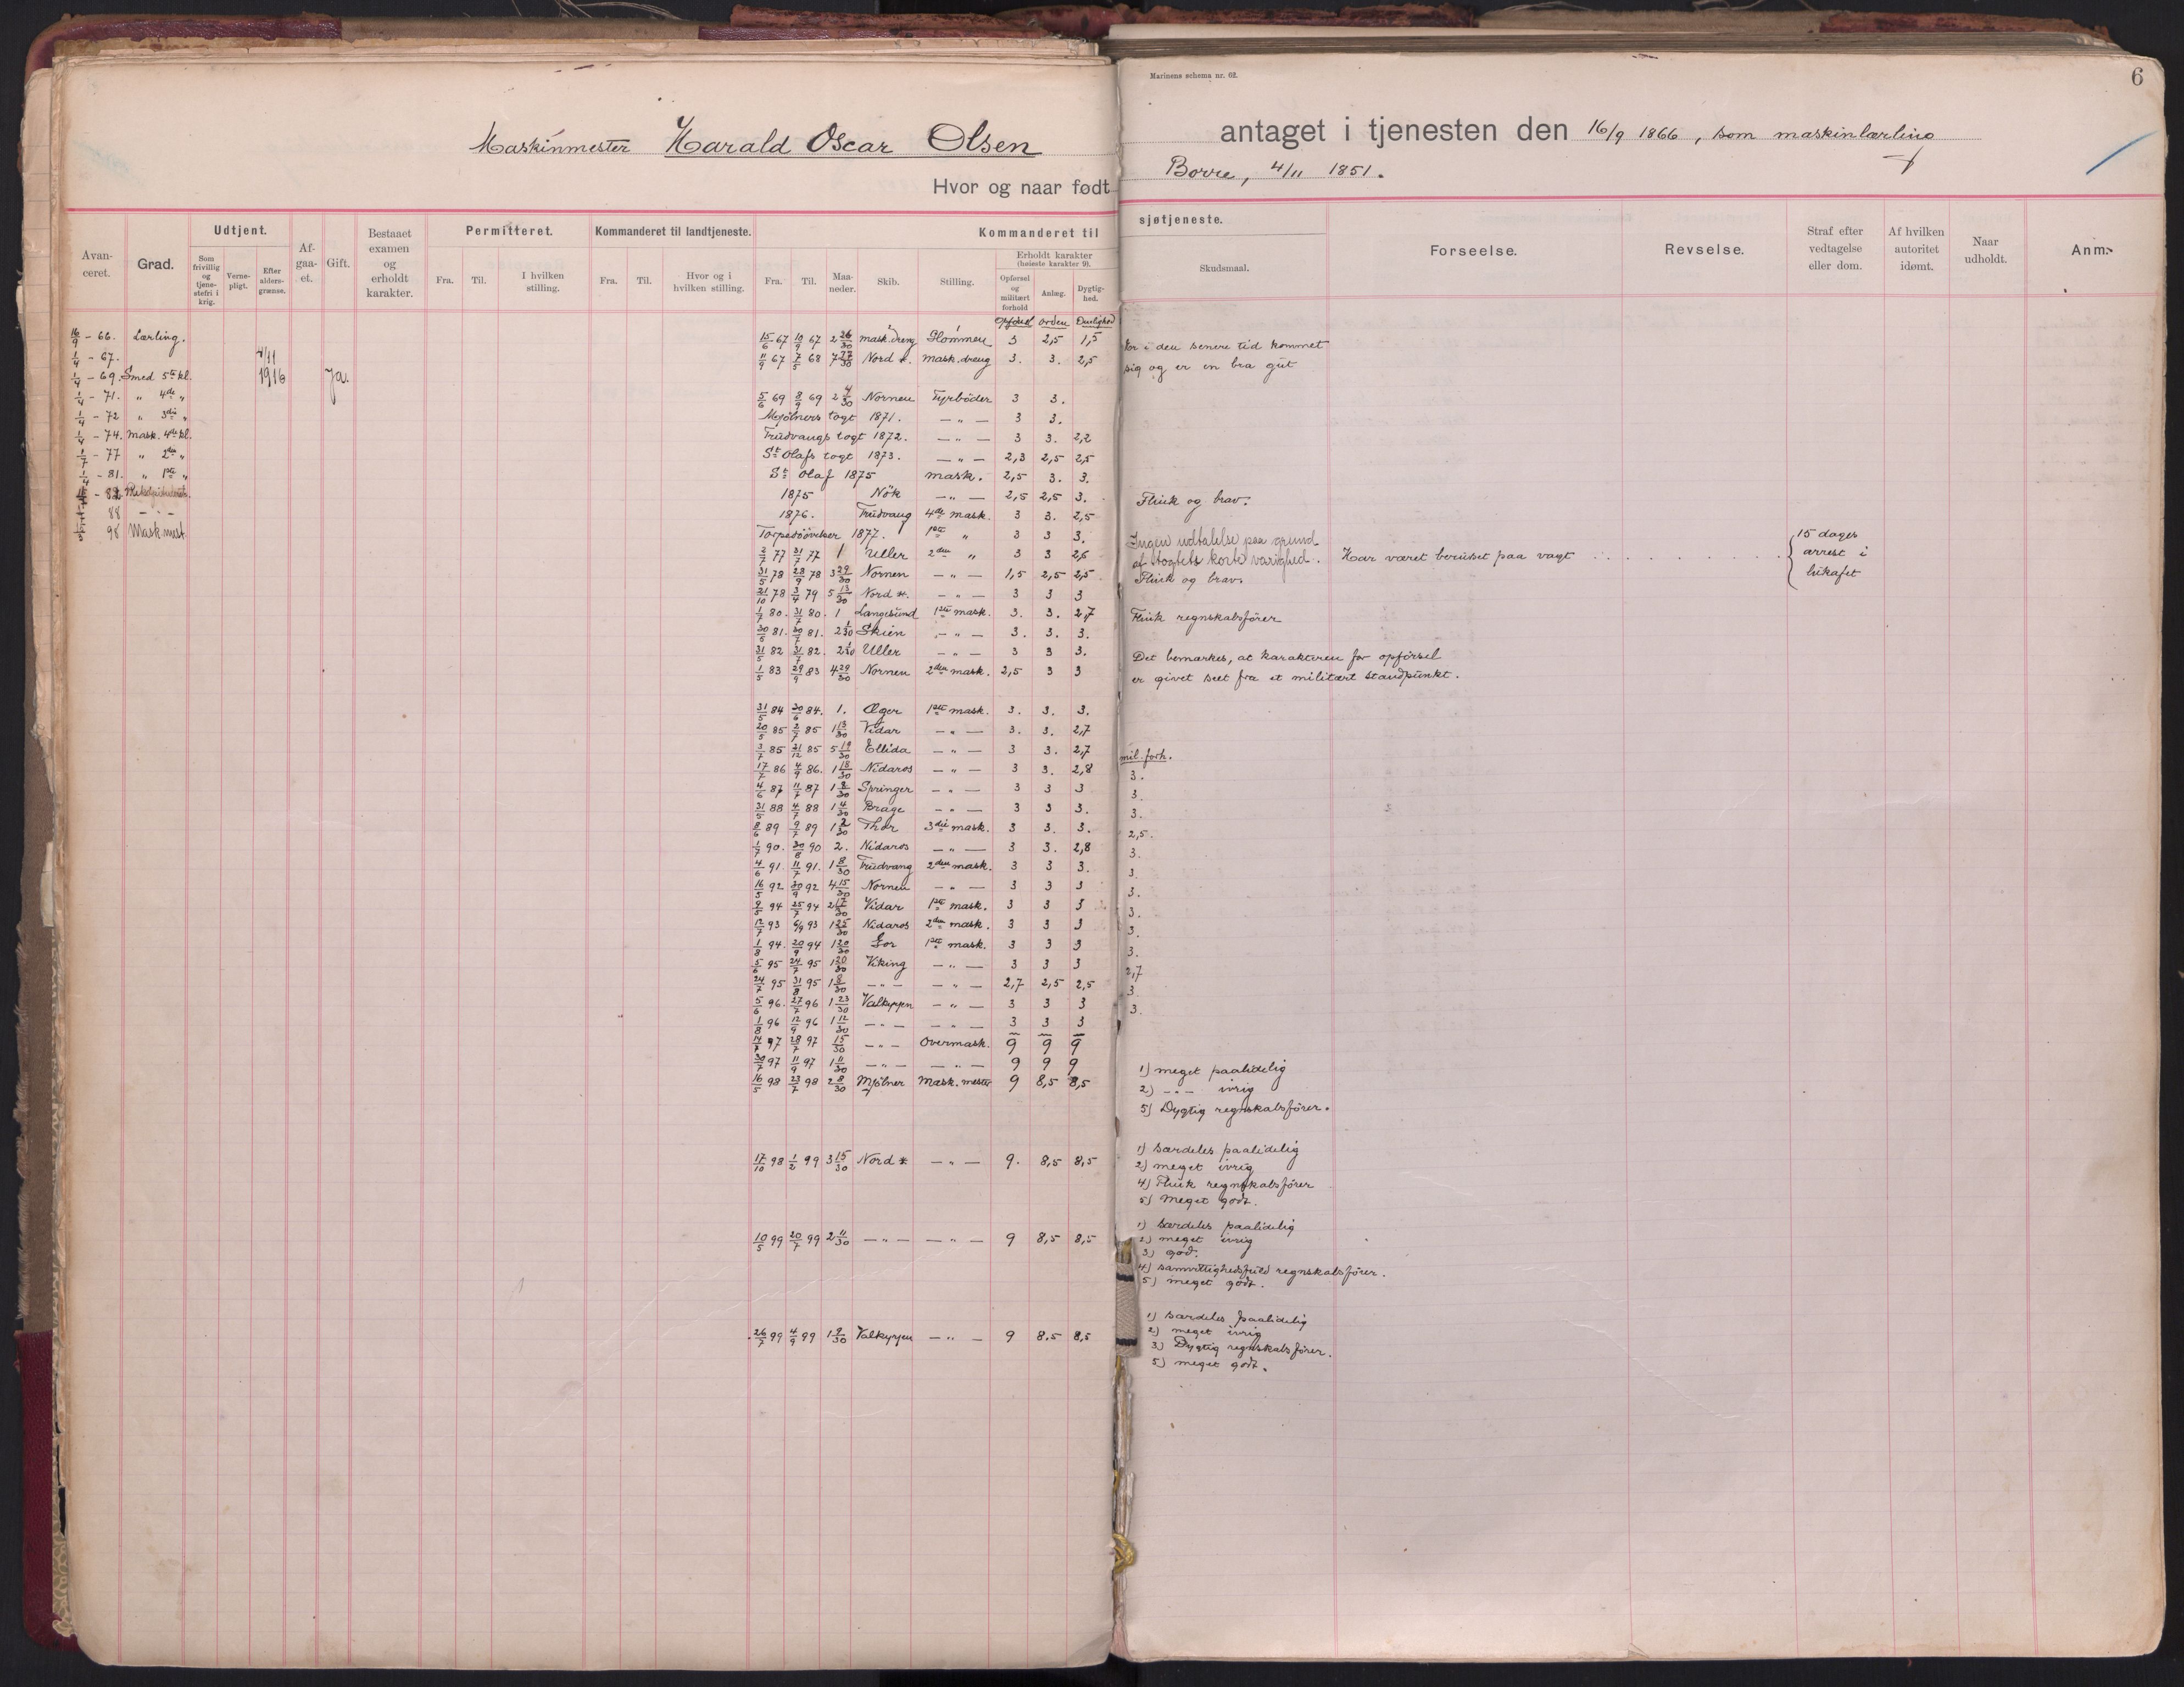 Marinens schema nr. 62.
6
Maskinmester Harald Oscar Olsen
antaget i tjenesten den 16/9 1866, som maskinlærling
Hvor og naar født
Borre, 4/11 1851.
Avan-
ceret.
Grad.
Udtjent.
Som
frivillig
og
tjene-
stefri i
krig.
Verne-
pligt.
Efter
alders-
grænse.
Af-
gaa-
et.
Gift.
Bestaaet
examen
og
erholdt
karakter.
Permitteret.
Fra.
Til.
I hvilken
stilling.
Kommanderet til landtjeneste.
Fra.
Til.
Hvor og i
hvilken stilling.
Kommanderet til
Fra.
Til.
Maa-
neder.
Skib.
Stilling.
Erholdt karakter
(høieste karakter 9).
Opførsel
og
militært
forhold
Anlæg.
Dygtig-
hed.
sjøtjeneste.
Skudsmaal.
Forseelse.
Revselse.
Straf efter
vedtagelse
eller dom.
Af hvilken
autoritet
idømt.
Naar
udholdt.
Anm.
16/9 - 66. Lærling.
1/4 - 67.
1/4 - 69. Smed 5te kl.
1/4 - 71. " 4de "
1/4 - 72 " 3die "
1/4 - 74. Mask. 4de kl.
1/7 - 77 " 2den "
1/4 - 81. " 1ste "
88 - " -
98 Mask.mest.
4/11
1916
Ja.
Opførsel orden Duelighed
15/6 67 10/9 67 2 26/30 mask.dreng Glommen 3 2,5 1,5
11/9 67 7/5 68 7 27/30 Nord *. mask.dreng 3. 3. 2,5
5/6 69 8/9 69 2 4/30 Nornen Fyrbøder 3 3.
Mjølners togt 1871. — " — 3 3.
Trudvangs togt 1872. — " — 3 3. 2,2
St Olafs togt 1873. — " — 2,3 2,5 2,5
St Olaf 1875 mask. 2,5 3. 3.
1875 Nøk — " — 2,5 2,5 3.
1876. Trudvang 4de mask. 3 3. 2,5
Torpedoøvelser 1877. 1ste " 3 3 3.
2/7 77 31/7 77 1 Uller 2den " 3 3 2,6
31/5 78 28/9 78 3 29/30 Nornen — " — 1,5 2,5 2,5
21/10 78 3/4 79 5 13/30 Nord *. — " — 3 3 3
1/7 80. 31/7 80. 1 Langesund 1ste mask. 3. 3. 2,7
30/5 81. 30/7 81. 2 1/30 Skien — " — 3. 3. 3.
31/5 82 31/7 82. 2 1/30 Uller — " — 3 3 3.
1/5 83 29/9 83 4 29/30 Nornen 2den mask. 2,5 3 3
31/5 84 30/6 84. 1. Æger 1ste mask. 3. 3. 3.
20/5 85 2/7 85 1 13/30 Vidar — " — 3. 3. 2,7
3/7 85 21/12 85 5 19/30 Ellida — " — 3 3. 2,7
17/7 86 4/9 86. 1 18/30 Nidaros — " — 3 3. 2,8
4/6 87 11/7 87 1 8/30 Springer — " — 3 3 3
31/5 88 4/7 88 1 4/30 Brage — " — 3 3 3.
8/6 89 9/7 89 1 2/30 Thor 3die mask. 3 3. 3.
1/7 90. 30/8 90 2. Nidaros — " — 3 3. 2,8
4/6 91. 11/7 91. 1 8/30 Trudvang 2den mask. 3 3 3.
16/5 92 30/9 92 4 15/30 Nornen — " — 3 3 3
9/5 94 25/7 94 2 17/30 Vidar 1ste mask. 3 3 3
12/7 93 6/9 93 1 25/30 Nidaros 2den mask. 3 3 3
1/8 94. 20/9 94 1 20/30 Gor 1ste mask. 3 3 3
5/6 95 24/7 95 1 20/30 Viking — " — 3 3 3
24/7 95 31/8 95 1 8/30 — " — — " — 2,7 2,5 2,5
5/6 96. 27/7 96 1 23/30 Valkyrjen — " — 3 3 3
1/8 96 12/9 96 1 12/30 — " — — " — 3 3 3
14/7 97 28/7 97 15/30 — " — Overmask. 9 9 9
30/7 97 11/9 97 1 11/30 — " — — " — 9 9 9
16/5 98 23/7 98 2 8/30 Mjølner Mask.mester 9 8,5 8,5
17/10 98 1/2 99 3 15/30 Nord * — " — 9. 8,5 8,5
10/5 99 20/7 99 2 11/30 — " — — " — 9 8,5 8,5
26/7 99 4/9 99 1 9/30 Valkyrjen — " — 9 8,5 8,5
Har i den senere tid kommet
sig og er en bra gut
Flink og brav.
Ingen udtalelse paa grund
af togtets korte varighed.
Har været beruset paa vagt
15 dages
arrest i
lukafet
Flink og brav.
Flink regnskabsfører
Det bemærkes, at karakteren for opførsel
er givet seet fra et militært standpunkt.
mil. forh.
3.
3.
3.
2,5.
3.
3.
3.
3.
3.
3.
2,7
3.
3.
1) meget paalidelig
2) — " — ivrig
5) Dygtig regnskabsfører.
1) særdeles paalidelig
2) meget ivrig
4) Flink regnskabsfører
5) meget godt.
1) særdeles paalidelig
2) meget ivrig
3) god.
4) samvittighedsfuld regnskabsfører.
5) meget godt.
1) særdeles paalidelig
2) meget ivrig
3) Dygtig regnskabsfører.
5) meget godt.